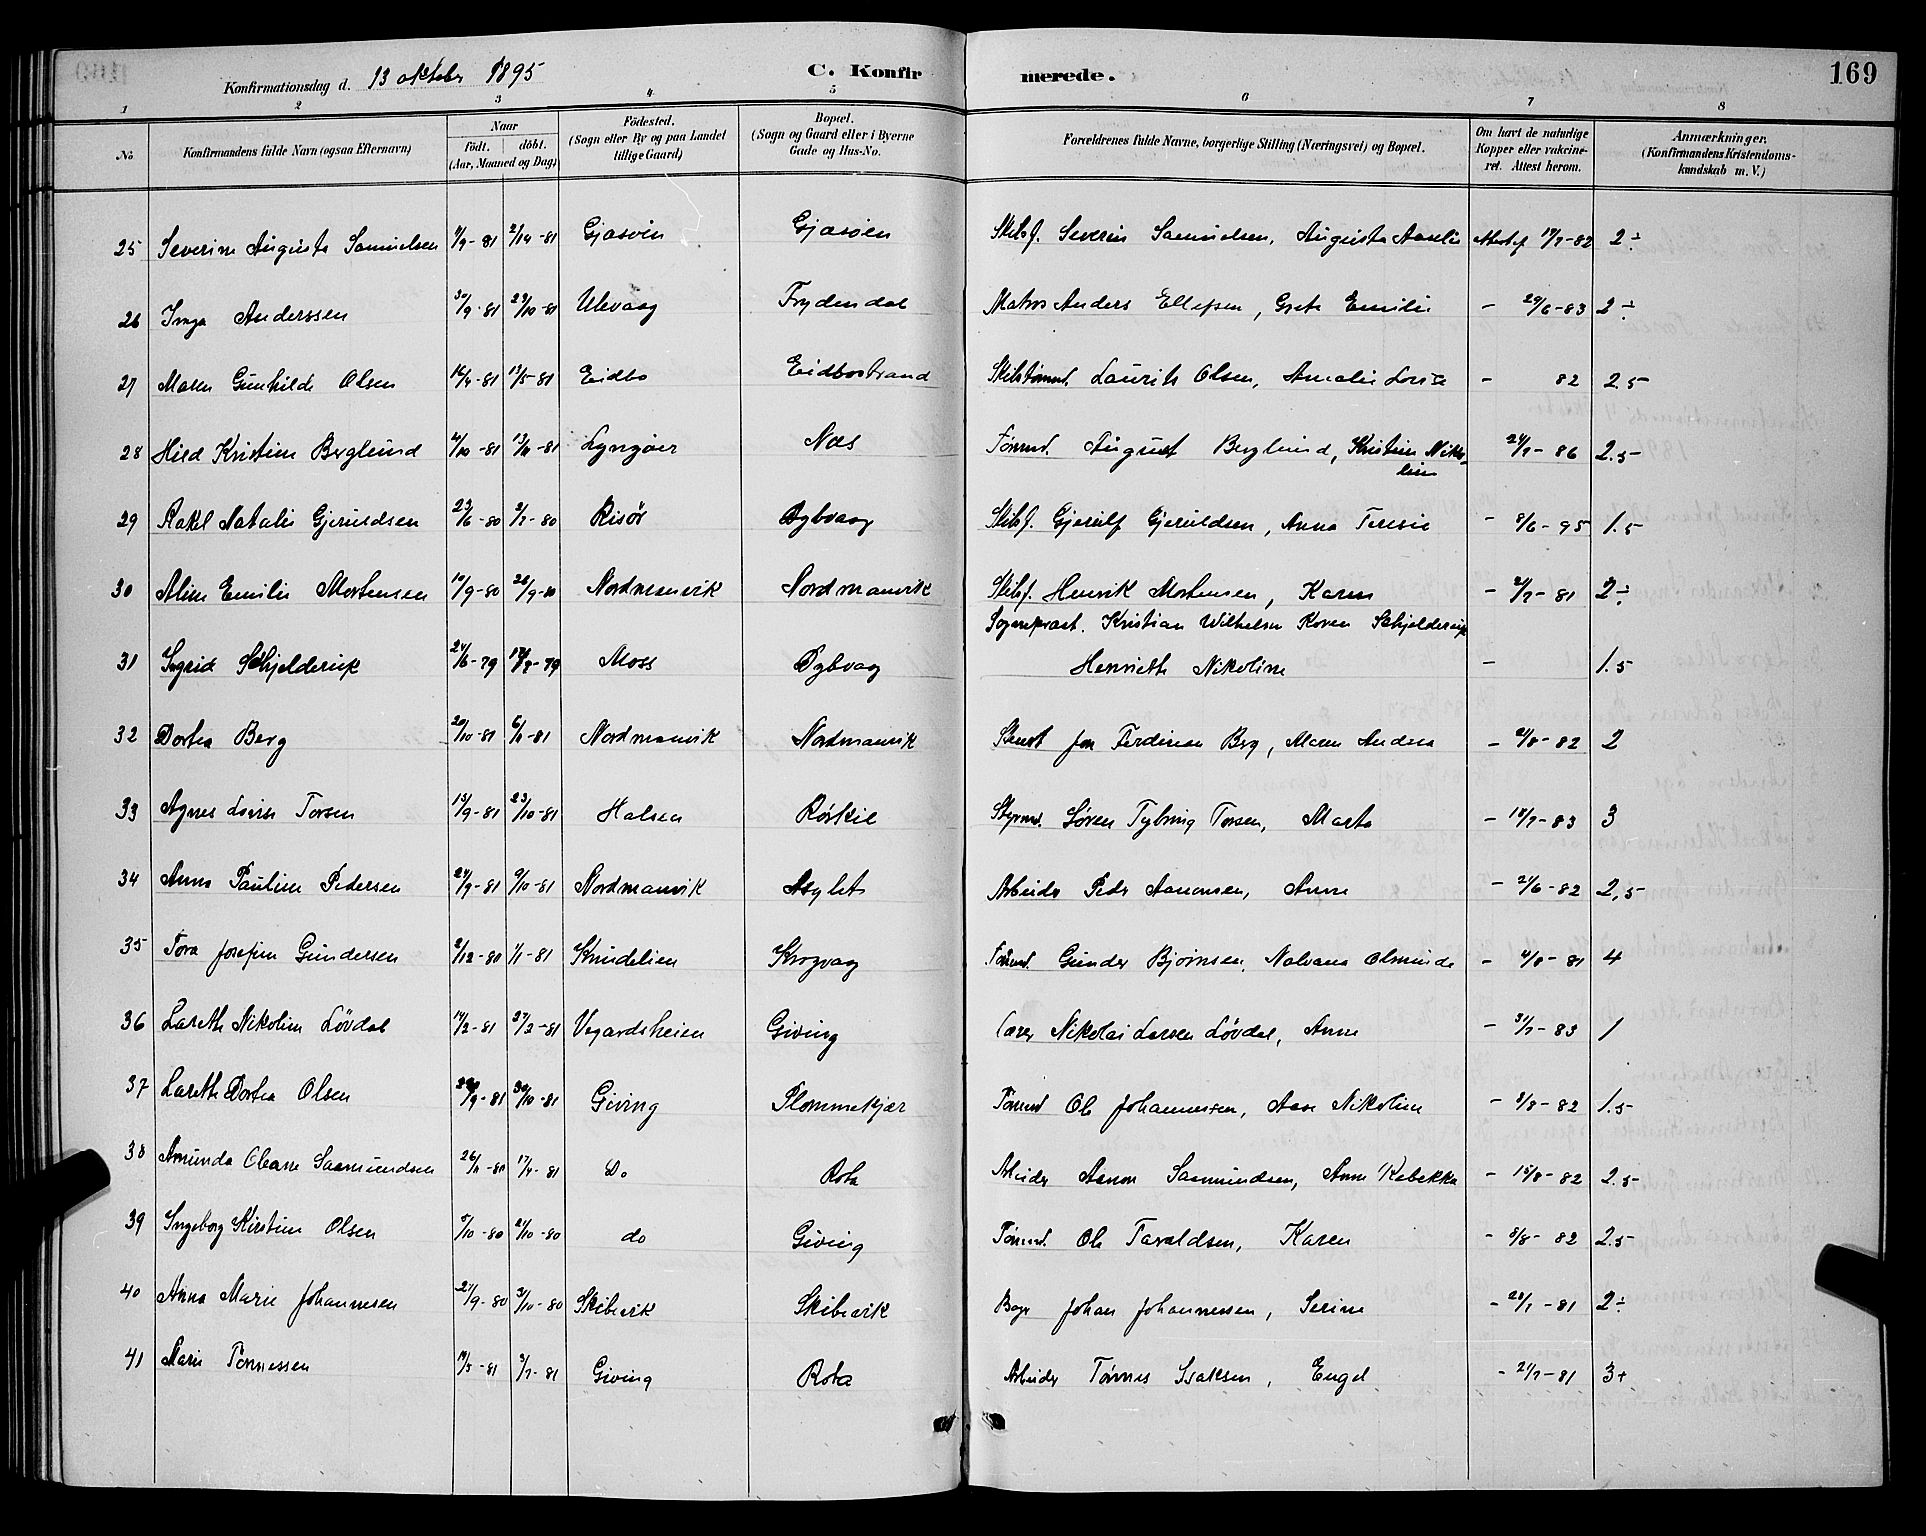 Konfirmationsdag d. 13 oktober 1895 C. Konfirmerede. 169
1 2 3 4 5 6 7 8
No Konfirmandens fulde Navn (ogsaa Efternavn) Naar födt. döbt. (Aar, Maaned og Dag) Födested. (Sogn eller By og paa Landet tillige Gaard) Bopæl. (Sogn og Gaard eller i Byerne Gade og Hus-No. Forældrenes fulde Navne, borgerlige Stilling (Næringsvei) og Bopæl. Om havt de naturlige Kopper eller vakcineret. Attest herom. Anmærkninger. (Konfirmandens Kristendomskundskab m. V.)
25 Severine Augusta Samuelsen 81 81 Gjæsöen Skibsf. Severin Samuelsen, Augusta Amelie 82 2÷
26 Inga Anderssen 30/9-81 23/10-81 Ulevaag Frydendal Matros Anders Ellefsen, Grete Emilie - 29/6-83 2÷
27 Maren Gunhilde Olsen 14/4-81 13/5-81 Eidbo Eidbostrand Skibstömmd. Laurits Olsen, Amalie Lovise - 82 2.5
28 Kristine Berglund 4/10-81 13/11-81 Lyngöer Næs Tömmd. August Berglund, Kristine Nikoline 24/7-86 2.5
29 Rakel Natalie Gjeruldsen 23/6-80 2/7-80 Risör Dybvaag Skibsf. Gjerulf Gjeruldsen, Anna Teresie - 8/6-95 1.5
30 Aline Emilie Mortensen 10/9-80 26/9-80 Nordmanvik Nordmanvik Skibsf. Henrik Mortensen, Karen - 2/7-81 2÷
Sogneprest. Kristian Wilhelm Koren Schjelderup
31 Ingrid Schjelderup 24/6-79 79 Moss Dybvaag Henriette Nikoline - 1.5
32 Dortea Berg 20/10-81 6/11-81 Nordmanvik Nordmanvik Ferdinan Berg, Maren Andrea - 2/8-82 2
33 Agnes Lovise Torsen 13/9-81 23/10-81 Halsen Rörkil Styrmd. Sören Tybring Torsen, Marta - 18/7-83 3
34 Anna Pauline Pedersen 24/9-81 9/10-81 Nordmanvik Asylet Arbeider Peder Aanonsen, Anne - 21/6-82 2,5
35 Tora Josefine Gundersen 2/12-80 1/1-81 Knudelien Krogvaag Tömmd. Gunder Björnsen, Olminde - 4/8-81 4
36 Larette Nikoline Lövdal 14/2-81 27/3-81 Vegardsheien Giving Lærer Nikolai Larsen Lövdal, Anne - 31/7-83 1
37 Larette Dortea Olsen 81 30/10-81 Giving Plommekjær Tömmd Ole Johannessen, Aase Nikoline - 8/8-82 1.5
38 Amunda Oleane Saamundsen 26/11-80 17/4-81 Do Rota Arbeider Aanon Saamundsen, Anne Rebekka - 15/8-82 2.5
39 Ingeborg Kirstine Olsen 5/10-80 21/10-80 do Giving Tömmd. Ole Taraldsen, Karen - 8/8-82 2.5
40 Anna Marie Johannesen 21/9-80 31/10-80 Skibevik Skibevik Johan Johannessen, Serine - 28/7-81 2÷
41 Marie Tönnessen 19/3-81 3/7-81 Giving Rota Arbeider Tönnes Isaksen, Engel - 21/7-81 3+